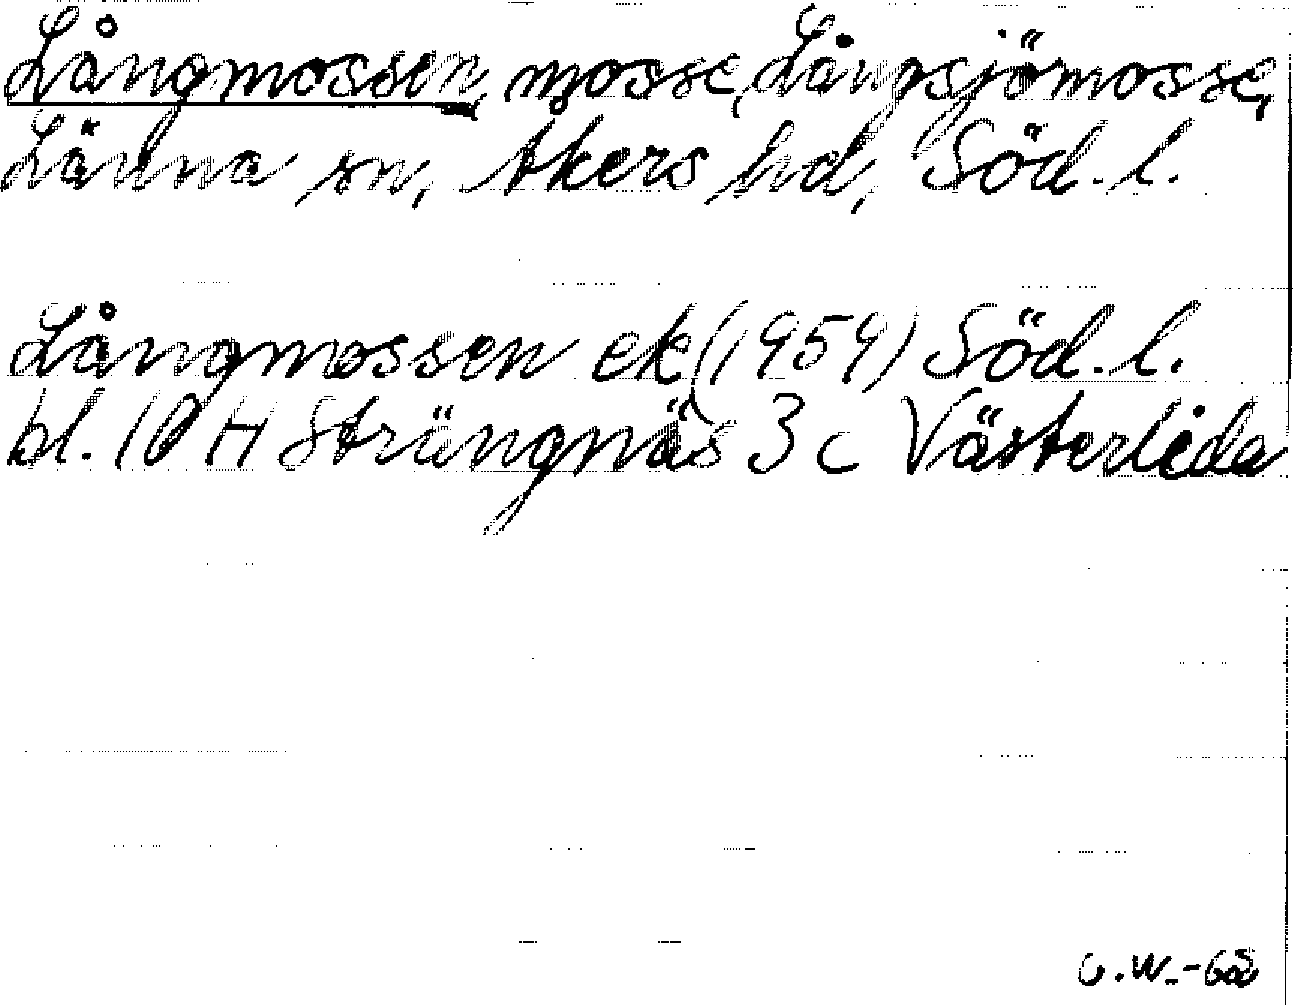 Långmossen, mosse, Långsjömosse,
Länna sn, Åkers hd, Söd. l.
Långmossen ek (1959) Söd. l.
bl. 10 H Strängnäs 3 c Västerlida